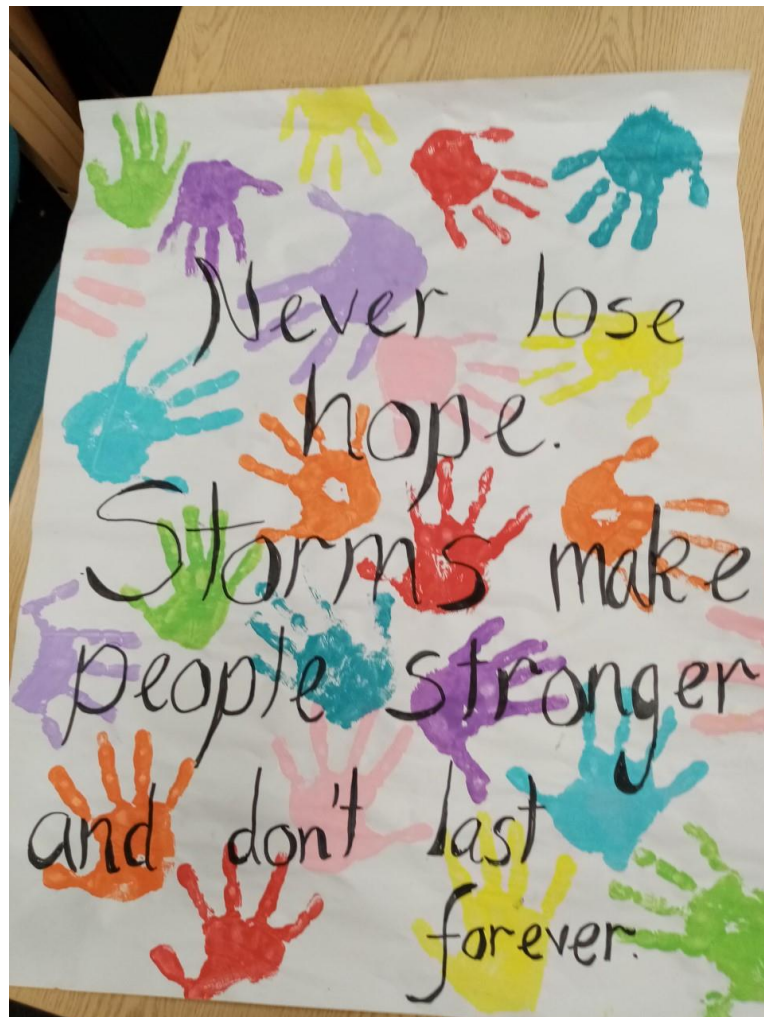 Never lose
hope.
Storms make
people stronger
and don't last
forever.